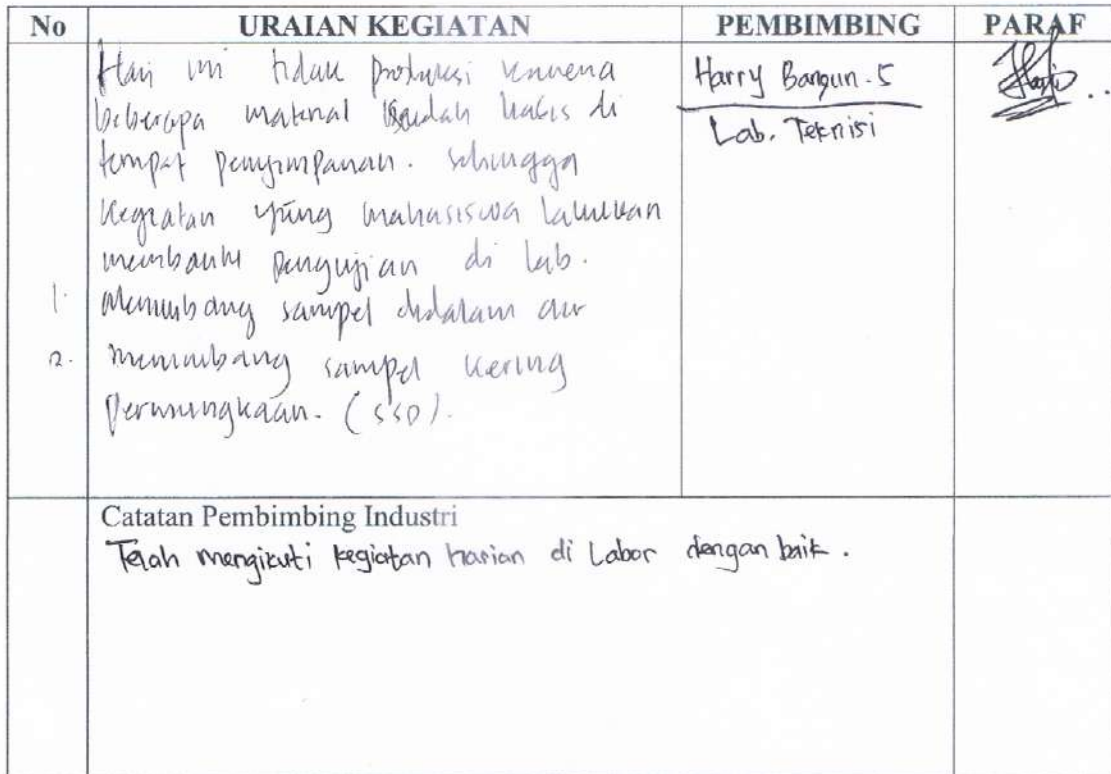 No URAIAN KEGIATAN PEMBIMBING PARAF
Hari ini tidak produksi karena
beberapa material sudah habis di
tempat penyimpanan. sehingga
kegiatan yang mahasiswa lakukan
membantu pengujian di lab.
1. Menimbang sampel didalam air
2. menimbang sampel kering
permungkaan. (SSD).
Harry Bangun.S
Lab. Teknisi
Catatan Pembimbing Industri
Telah mengikuti kegiatan harian di Labor dengan baik.